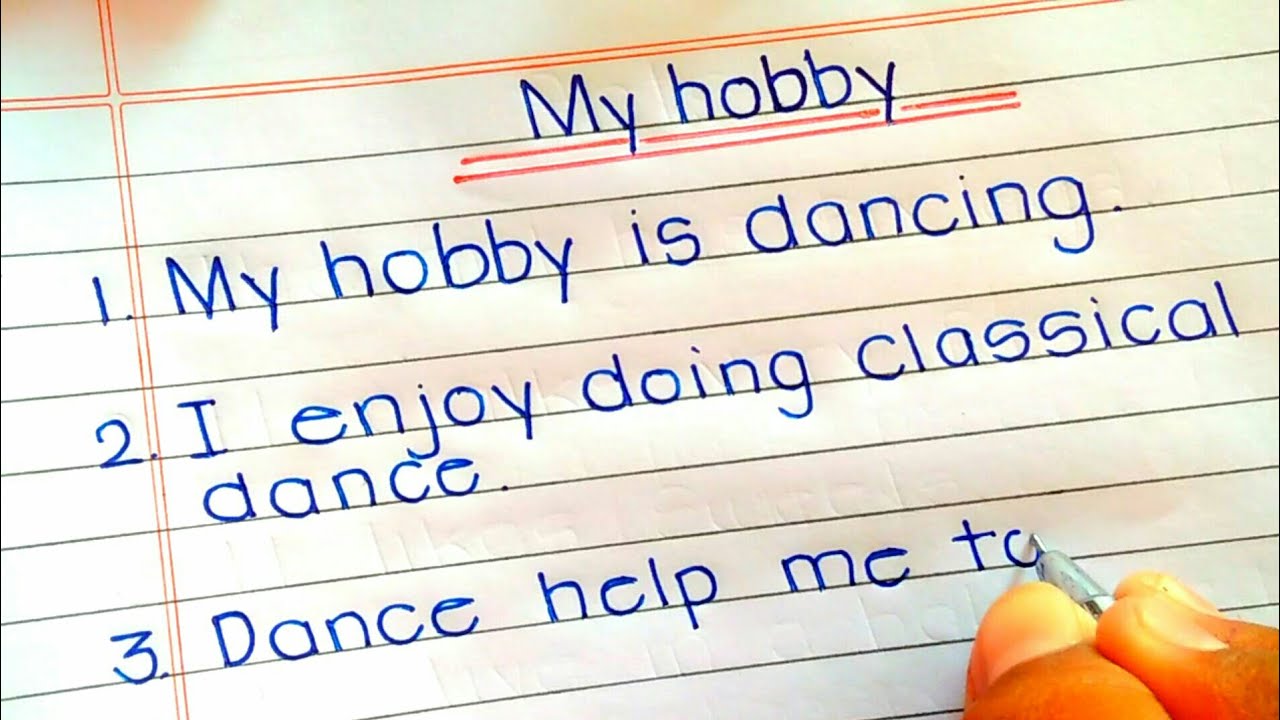 My hobby
1. My hobby is dancing.
2. I enjoy doing classical
dance.
3. Dance help me to